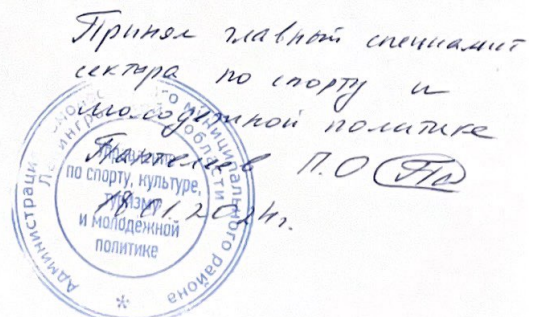 Принял главный специалист
сектора по спорту и
молодежной политике
Пантелеев П.О
18.01.2024г.
Администрация
муниципального района
Ленинградской области
по спорту, культуре,
туризму
и молодежной
политике